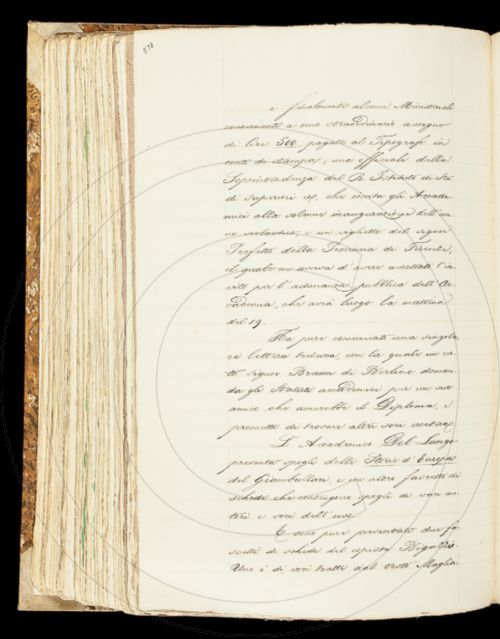 578
e finalmente alcune Ministeriali
concernenti a uno straordinario assegno
di lire 500, pagate al Tipografo in
conto di stampa; una officiale della
Soprintendenza del R. Istituto di Stu
di Superiori ec, che invita gli Accade
mici alla solenne inaugurazione dell'an
no scolastico; e un viglietto del signor
Prefetto della Provincia di Firenze,
il quale avvisa d'avere accettato l'in
vito per l'adunanza pubblica dell'Ac
cademia, che avrà luogo la mattina
del 19.
Ha pure comunicata una singola
re lettera tedesca, con la quale un ta
le signor Braun di Berlino doman
da gli Statuti accademici per un suo
amico che amerebbe il Diploma, e
promette di trovare altri soci
L'Accademico Del Lungo
presenta spogli delle Storie d'Europa
del Giambullari, e un altro fascetto di
schede che contengono spogli di vari au
tori e voci dell'uso
E sono pure presentati due fa
scetti di schede del copista Bigazzi.
Uno è di voci tratte dal testo Maglia